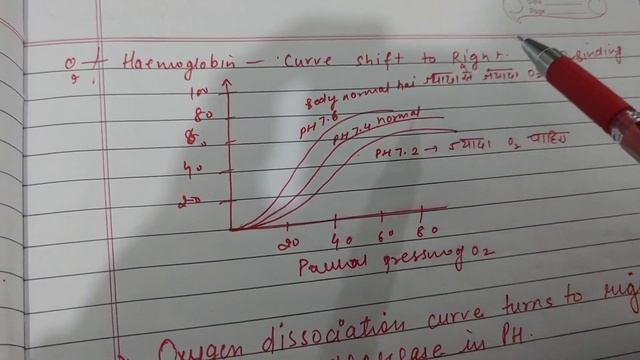 Haemoglobin - Curve shift to Right. Binding
100
Body normal hai ज्यादा से ज्यादा O2
80
PH 7.6
PH 7.4 normal
60
PH 7.2 → ज्यादा O2 चाहिए
40
20
20 40 60 80
Partial pressure of O2
Oxygen dissociation curve turns to right
decrease in PH.